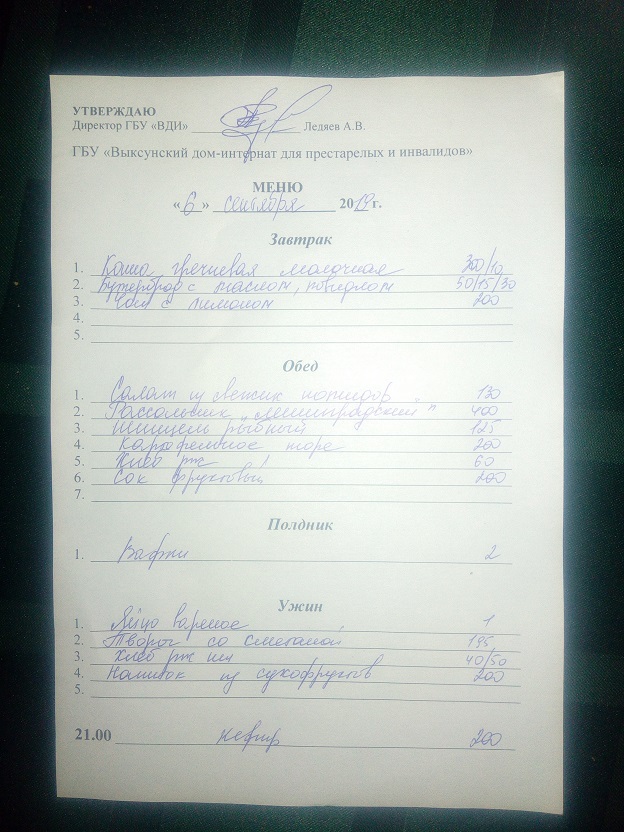 УТВЕРЖДАЮ
Директор ГБУ «ВДИ» Ледяев А.В.
ГБУ «Выксунский дом-интернат для престарелых и инвалидов»
МЕНЮ
«6» сентября 2019 г.
Завтрак
1. Каша гречневая молочная 300/10
2. Бутерброд с маслом, повидлом 50/15/30
3. Чай с лимоном 200
4.
5.
Обед
1. Салат из свежих помидор 130
2. Рассольник „Ленинградский" 400
3. Шницель рыбный 125
4. Картофельное пюре 200
5. Хлеб рж 60
6. Сок фруктовый 200
7.
Полдник
1. Вафли 2
Ужин
1. Яйцо вареное 1
2. Творог со сметаной 195
3. Хлеб рж пш 40/50
4. Напиток из сухофруктов 200
5.
21.00 кефир 200